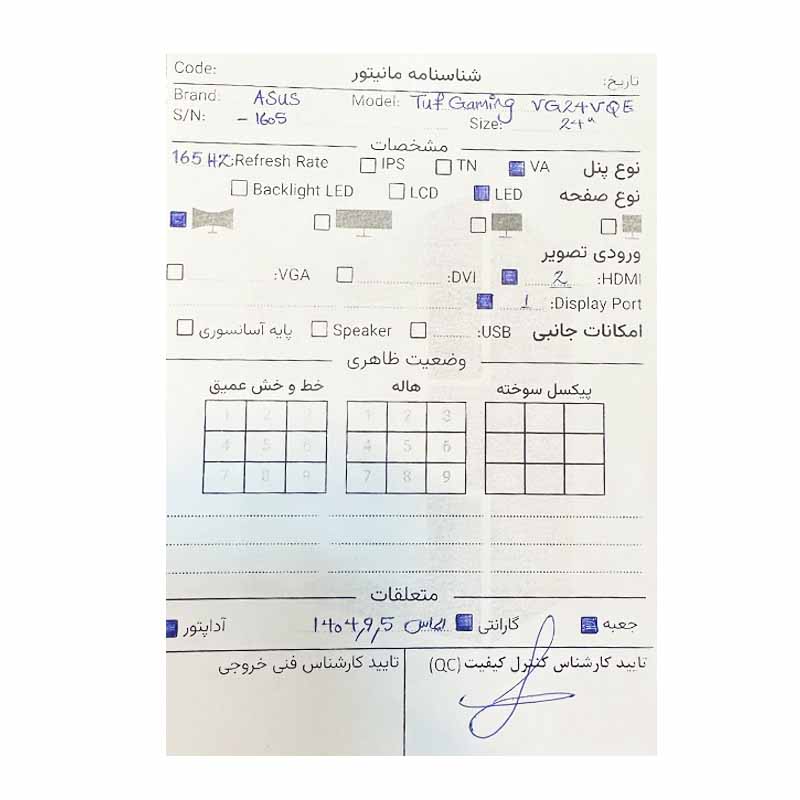 تاریخ: شناسنامه مانیتور Code:
Brand: ASUS Model: Tuf Gaming VG24VQE
S/N: - 1605 Size: 24"
مشخصات
نوع پنل VA TN IPS Refresh Rate: 165 HZ
نوع صفحه LED LCD Backlight LED
ورودی تصویر
HDMI: 2 DVI: VGA:
Display Port: 1
امکانات جانبی USB: Speaker پایه آسانسوری
وضعیت ظاهری
پیکسل سوخته هاله خط و خش عمیق
1 2 3 1 2 3
4 5 6 4 5 6
7 8 9 7 8 9
متعلقات
جعبه گارانتی الماس 1404,9,5 آداپتور
تایید کارشناس کنترل کیفیت (QC) تایید کارشناس فنی خروجی